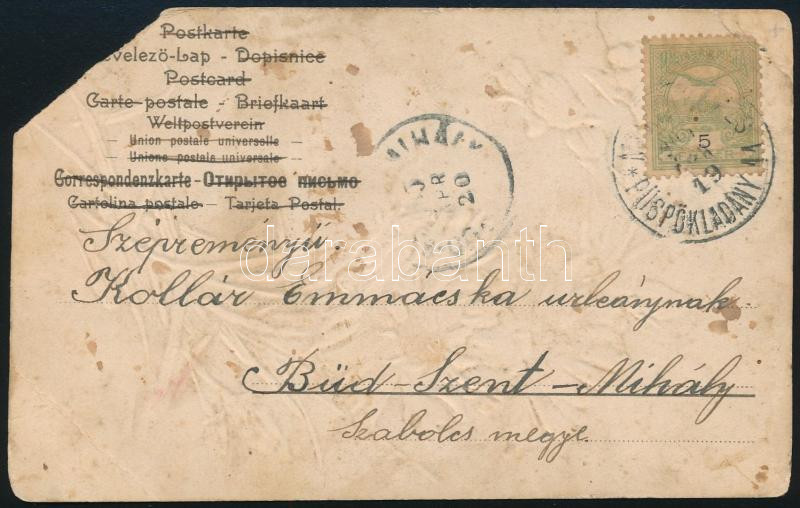 Postkarte
evelező-Lap - Dopisnice
Postcard
Carte postale - Briefkaart
Weltpostverein
- Union postale universelle -
- Unione postale universale -
Correspondenzkarte - Открытое письмо
Cartolina postale - Tarjeta Postal.
Szépreményű
Kollár Emmácska urleánynak.
Büd-Szent-Mihály
Szabolcs megye.
5
19
PÜSPÖKLADÁNY
MIHÁLY
20
darabanth